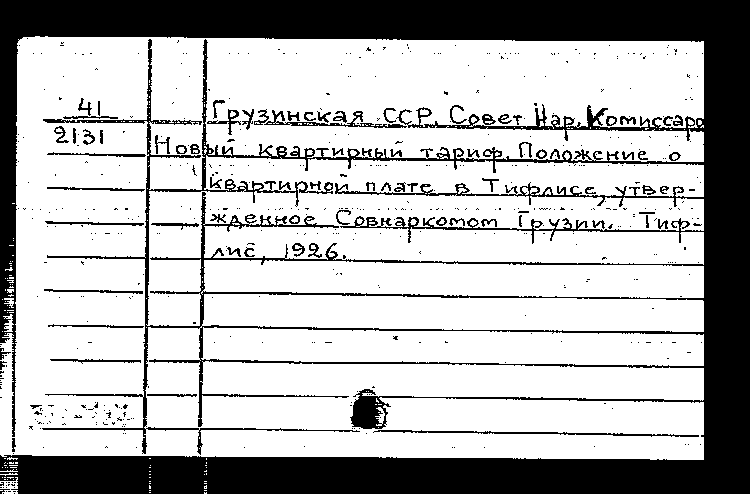 41
2131
Грузинская ССР. Совет Нар. Комиссаро
Новый квартирный тариф. Положение о
квартирной плате в Тифлисе, утвер-
жденное Совнаркомом Грузии. Тиф-
лис, 1926.